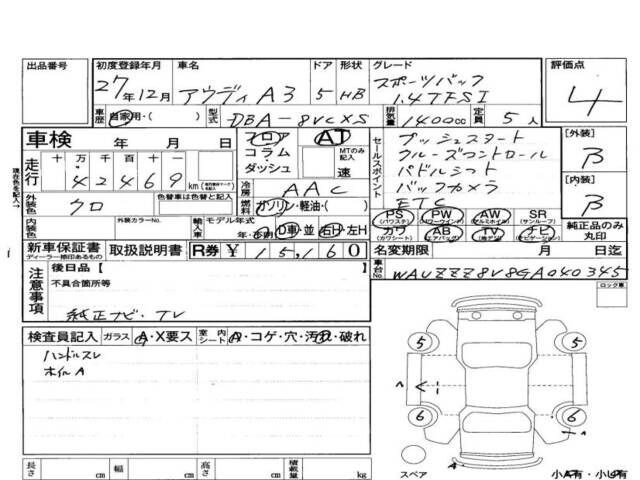 出品番号
初度登録年月
27年12月
車名
アウディ A3
ドア
5
形状
HB
グレード
スポーツバック
1.4TFSI
評価点
4
車歴
自家用・( )
型式
DBA-8VCXS
排気量
1400cc
定員
5人
車検 年 月 日
フロア
コラム・
ダッシュ
AT
MTのみ記入
速
セールスポイント
プッシュスタート
クルーズコントロール
パドルシフト
バックカメラ
ETC
[外装]
B
[内装]
B
現在色を記入→
走行
十 万 千 百 十 一
42469
km
冷房
AAC
外装色
クロ
色替車は色替と記入
燃料
ガソリン・軽油・( )
内装色
外装カラーNo.
輸入車
モデル年式
年
D車・並
右H・左H
PS
(パワステ)
PW
(パワーウインド)
AW
(アルミホイル)
SR
(サンルーフ)
カワ
(カワシート)
AB
(エアバッグ)
TV
ナビ
(ナビゲーション)
純正品のみ
丸印
新車保証書
ディーラー捺印あるもの
取扱説明書
R券
¥ 15,160
名変期限 月 日迄
注意事項
後日品 [ ]
不具合箇所等
純正ナビ・TV
車台No.
WAUZZZ8V8GA040345
ロック車
検査員記入
ガラス
A・X要ス
室内シート
A・コゲ・穴・汚れ・破れ
ハンドルスレ
ホイルA
5
5
6
6
スペア
小A有・小U有
長さ cm
幅 cm
高さ cm
積載量 kg